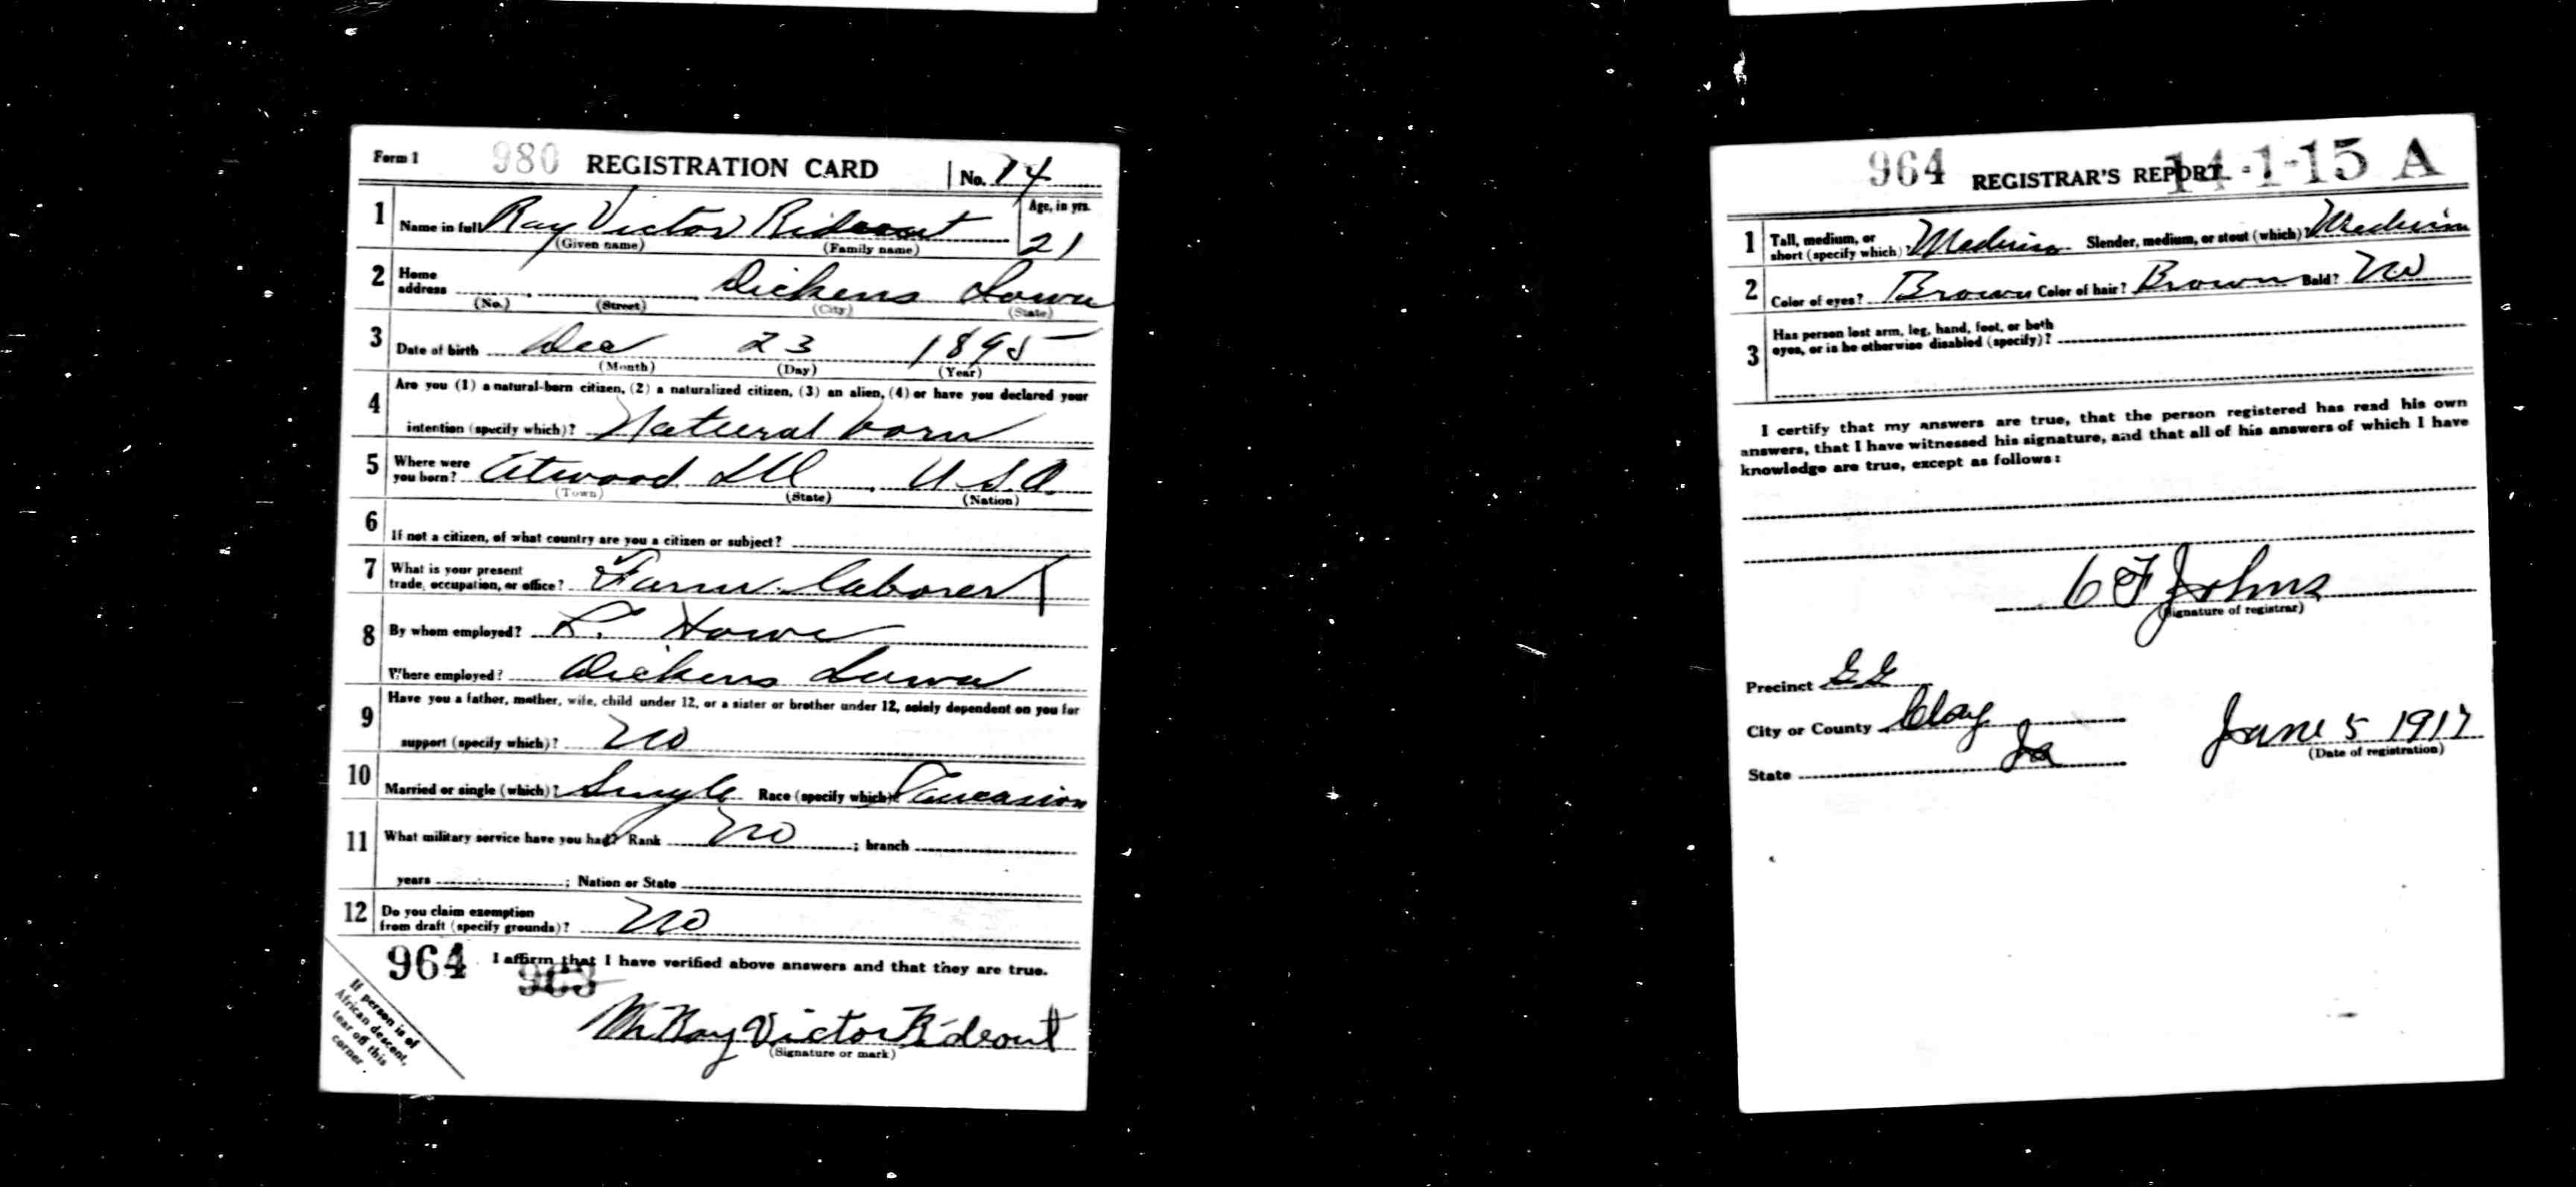 Form 1 980 REGISTRATION CARD No. 74
1 Name in full Ray Victor Rideout Age, in yrs. 21
(Given name) (Family name)
2 Home address Dickens Iowa
(No.) (Street) (City) (State)
3 Date of birth Dec 23 1895
(Month) (Day) (Year)
4 Are you (1) a natural-born citizen, (2) a naturalized citizen, (3) an alien, (4) or have you declared your
intention (specify which)? Natural born
5 Where were you born? Atwood Ill USA
(Town) (State) (Nation)
6 If not a citizen, of what country are you a citizen or subject?
7 What is your present trade, occupation, or office? Farm laborer
8 By whom employed? L. Howe
Where employed? Dickens Iowa
9 Have you a father, mother, wife, child under 12, or a sister or brother under 12, solely dependent on you for
support (specify which)? No
10 Married or single (which)? Single Race (specify which)? Caucasion
11 What military service have you had? Rank No ; branch
years ; Nation or State
12 Do you claim exemption from draft (specify grounds)? No
964 I affirm that I have verified above answers and that they are true.
963
If person is of
African descent,
tear off this
corner.
Mr Ray Victor Rideout
(Signature or mark)
964 REGISTRAR'S REPORT 14-1-15 A
1 Tall, medium, or short (specify which)? Medium Slender, medium, or stout (which)? Medium
2 Color of eyes? Brown Color of hair? Brown Bald? No
3 Has person lost arm, leg, hand, foot, or both
eyes, or is he otherwise disabled (specify)?
I certify that my answers are true, that the person registered has read his own
answers, that I have witnessed his signature, and that all of his answers of which I have
knowledge are true, except as follows:
C F Johns
(Signature of registrar)
Precinct
City or County Clay
State Ia
June 5 1917
(Date of registration)